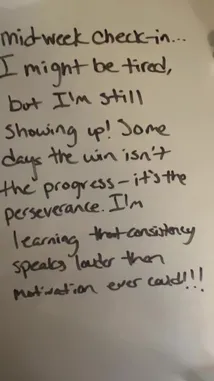 mid-week check-in...
I might be tired,
but I'm still
showing up! Some
days the win isn't
the progress – it's the
perseverance. I'm
learning that consistency
speaks louder than
motivation ever could!!!